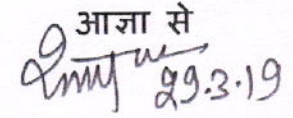 आज्ञा से
29.3.19